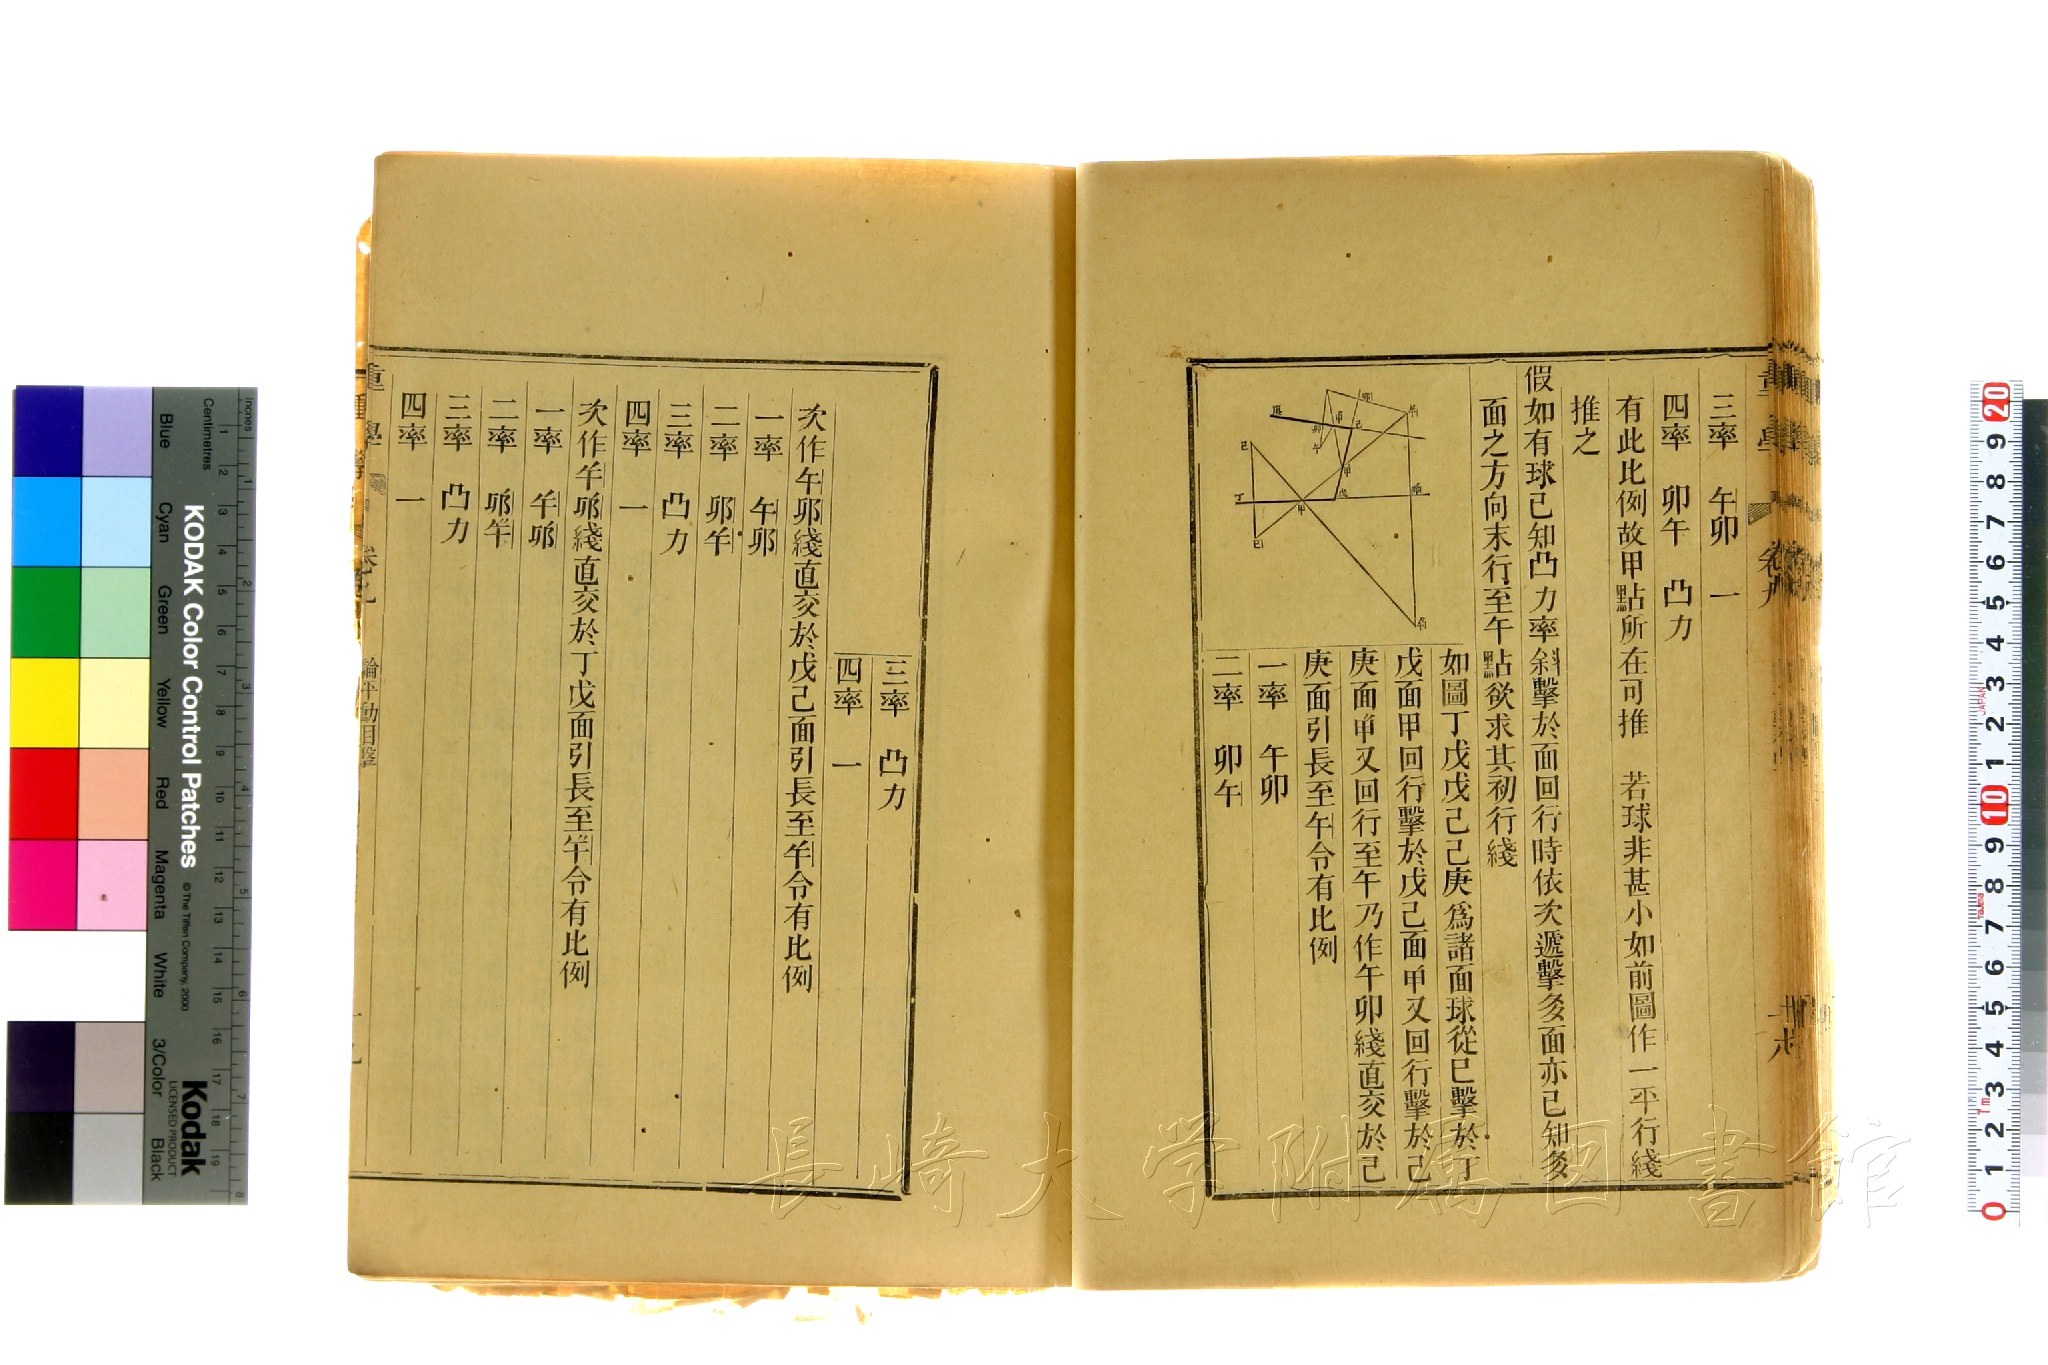 三率　午卯　一
四率　卯午　凸力
有此比例故甲點所在可推　若球非甚小如前圖作一平行綫
推之
假如有球己知凸力率斜擊於面回行時依次遞擊多面亦己知多
面之方向末行至午點欲求其初行綫
如圖丁戊戊己己庚爲諸面球從巳擊於丁
戊面甲回行擊於戊己面甲又回行擊於己
庚面甲又回行至午乃作午卯綫直交於己
庚面引長至午令有比例
一率　午卯
二率　卯午
三率　凸力
四率　一
次作午卯綫直交於戊己面引長至午令有比例
一率　午卯
二率　卯午
三率　凸力
四率　一
次作午卯綫直交於丁戊面引長至午令有比例
一率　午卯
二率　卯午
三率　凸力
四率　一
重學
卷九
長崎大学附属図書館
KODAK Color Control Patches
© The Tiffen Company, 2000
Kodak
LICENSED PRODUCT
Blue
Cyan
Green
Yellow
Red
Magenta
White
3/Color
Black
Inches
Centimetres
JAPAN